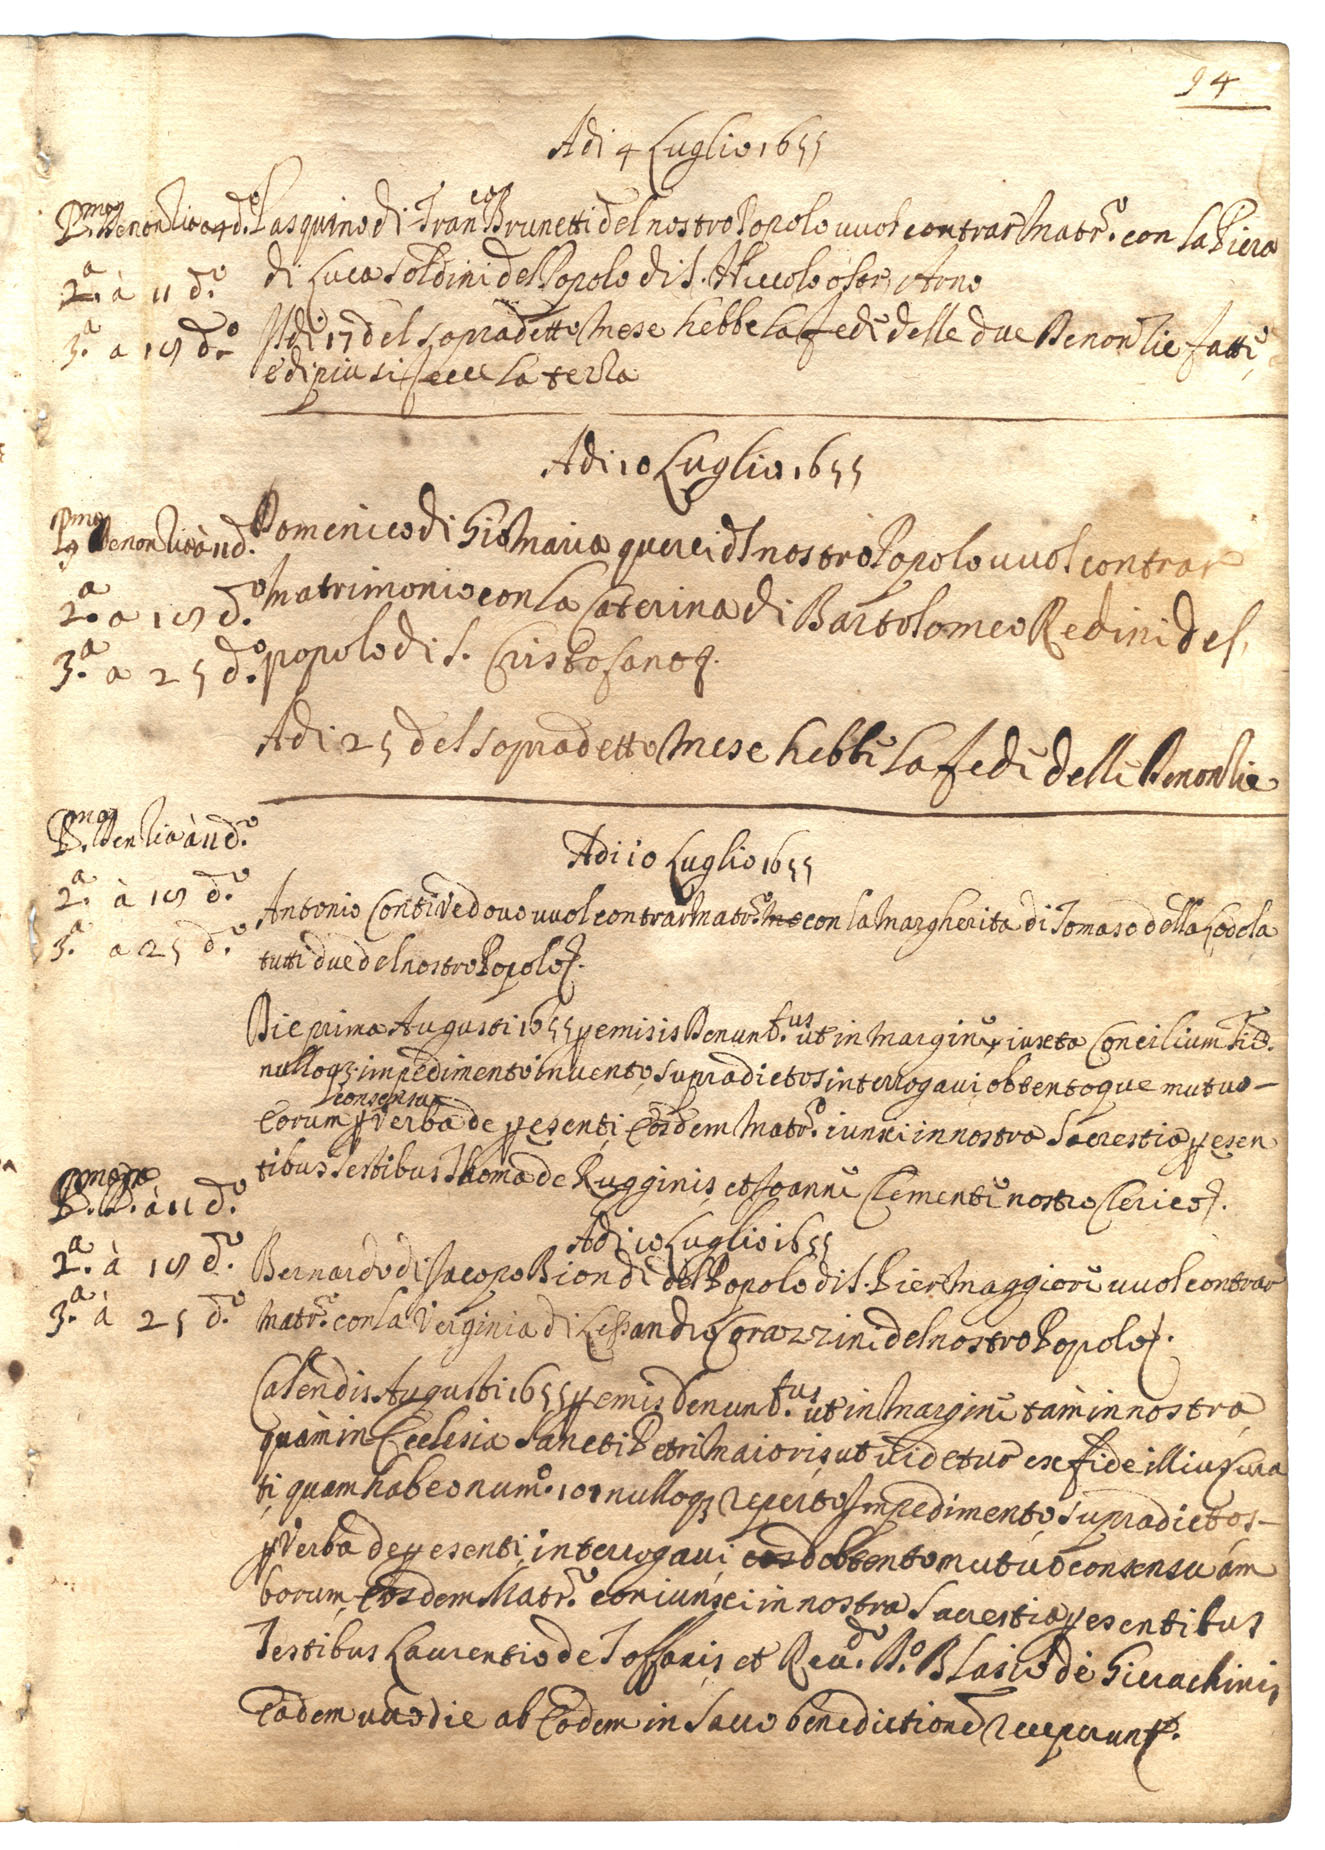 94
Adi 4 Luglio 1655
P.ma Denontia a 4 d.o Pasquino di Fran.co Brunetti del nostro Popolo vuol contrar Matr.o con la Piera
2.a à 11 d.o di Luca Soldini del Popolo di S. Niccolo oltr'Arno
3.a a 18 d.o Adi 17 del sopradetto Mese hebbe la fede delle due Denontie fatte,
e di piu si fece la terza
Adi 10 Luglio 1655
P.ma Denontia à 11 d.o Domenico di Gio Maria querci dl nostro Popolo vuol contrar
2.a a 18 d.o Matrimonio con la Caterina di Bartolomeo Redini del
3.a a 25 d.o popolo di S. Cristofano
Adi 25 del sopradetto Mese hebbe la fede delle Denontie
P.ma Dentia à 11 d.o
Adi 10 Luglio 1655
2.a à 18 d.o Antonio Conti Vedovo vuol contrar Matr.o con la Margherita di Tomaso della
3.a a 25 d.o tutti due del nostro Popolo
Die prima Augusti 1655 pemisis Denunt.us ut in Margine iuxta Concilium Trid.
nulloq3 impedimento invento, supradictos interrogavi, obtentoque mutuo
consensu
Eorum p Verba de pesenti, Eosdem Matr.o iunxi in nostra Sacrestia pesen
tibus Testibus Thoma de Rugginis, et Joanne Clemente nostro Clerico
P.ma D. à 11 d.o
Adi 10 Luglio 1655
2.a à 18 d.o Bernardo di Jacopo Biondi del Popolo di S. Pier Maggiore vuol contrar
3.a à 25 d.o Matr.o con la Verginia di Lessandro Corazzini del nostro Popolo
Calendis Augusti 1655 pemis Denunt.us ut in Margine tam in nostra
quàm in Ecclesia Sancti Petri Maioris, ut videtur ex fide illius Cura
ti, quam habeo num.o 101 nulloq3 reperto Impedimento, supradictos
p Verba de pesenti, interrogavi, obtento mutuo consensu am
borum, Eosdem Matr.o coniunxi in nostra Sacrestia pesentibus
Testibus Laurentio de Toffanis, et Reu.do D.o Blasio de Gierachinis
Eadem vero die ab Eodem in Sacro benedictione receperunt.